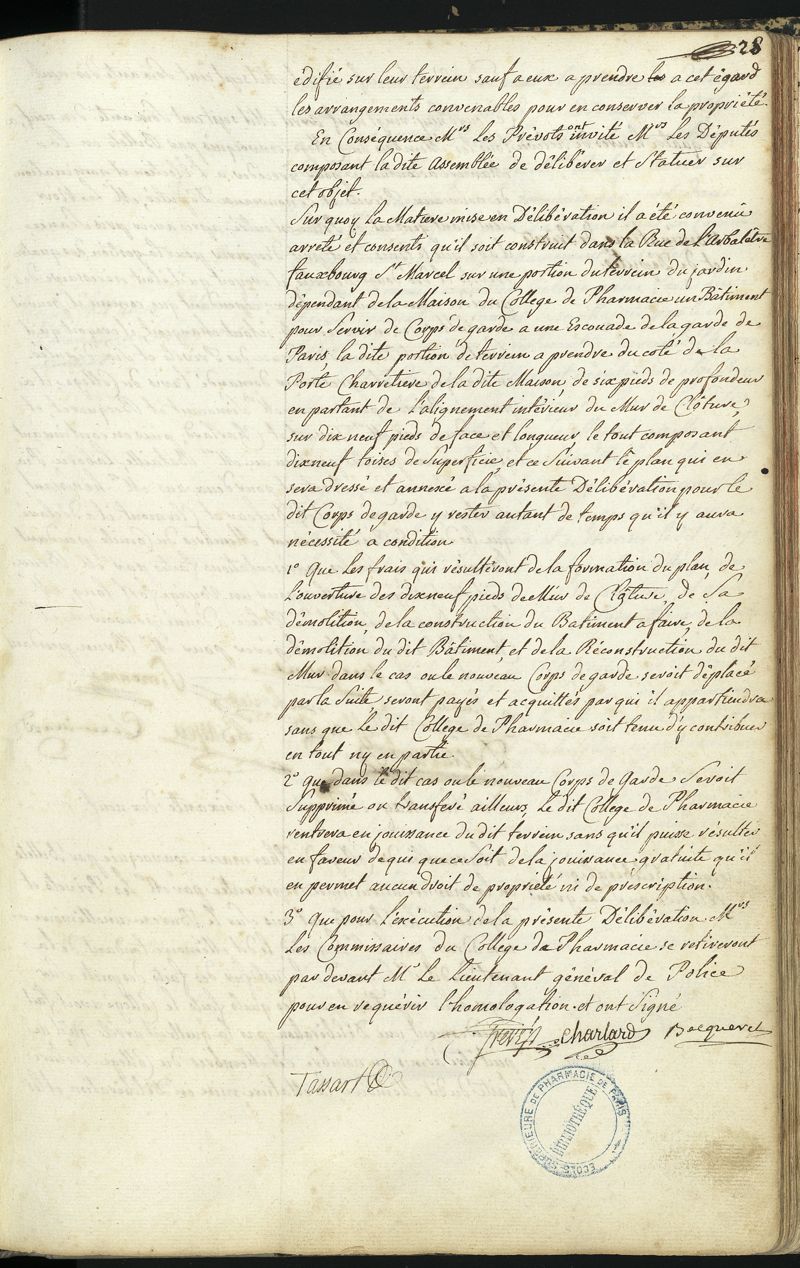 28
edifié sur leur terrein sauf a eux a prendre les a cet égard
les arrangements convenables pour en conserver la propriété.
En Conséquence Mrs Les Prévots ont invité Mrs Les Députés
composant la dite Assemblée de délibérer et Statuer sur
cet objet.
Sur quoy la Matiere mise en Délibération il a été convenu
arreté et consenti qu'il soit construit dans la Rue de L'Arbalêtre
fauxbourg St Marcel sur une portion du terrein du jardin
dépendant de la Maison du College de Pharmacie un Bâtiment
pour Servir de Corps de garde a une Escouade de la garde de
Paris la dite portion de terrein a prendre du coté de la
Porte Charretiere de la dite Maison de six pieds de profondeur
en partant de L'alignement intérieur du Mur de Clôture,
sur dix neuf pieds de face et longueur le tout composant
dix neuf toises de Superficie, et ce Suivant le plan qui en
sera dressé et annexé a la présente Délibération pour le
dit Corps de garde y rester autant de temps qu'il y aura
nécessité a condition
1° Que Les frais qui résulteront de la formation du plan, de
L'ouverture des dix neuf pieds de Mur de Clôture, de Sa
démolition, de la construction du Batiment a faire, de la
démolition du dit Bâtiment, et de la Réconstruction du dit
Mur dans le cas ou le nouveau Corps de garde seroit déplacé
par la Suite seront payés et acquittés par qui il appartiendra
sans que Le dit College de Pharmacie soit tenu d'y contribuer
en tout ny en partie.
2° que dans le dit cas ou le nouveau Corps de Garde Seroit
Supprimé ou transferé ailleurs, Le dit College de Pharmacie
rentrera en jouissance du dit terrein sans qu'il puisse résulter
en faveur de qui que ce Soit de la jouissance gratuite qu'il
en permet aucun droit de propriété ni de prescription.
3° Que pour L'exécution de la présente Délibération Mrs
Les Commissaires du College de Pharmacie se retireront
par devant Mr Le Lieutenant général de Police
pour en requérir l'homologation. et ont Signé
Trevez Charlard Bacqueret
Tassart
ECOLE SUPERIEURE DE PHARMACIE DE PARIS
BIBLIOTHÈQUE